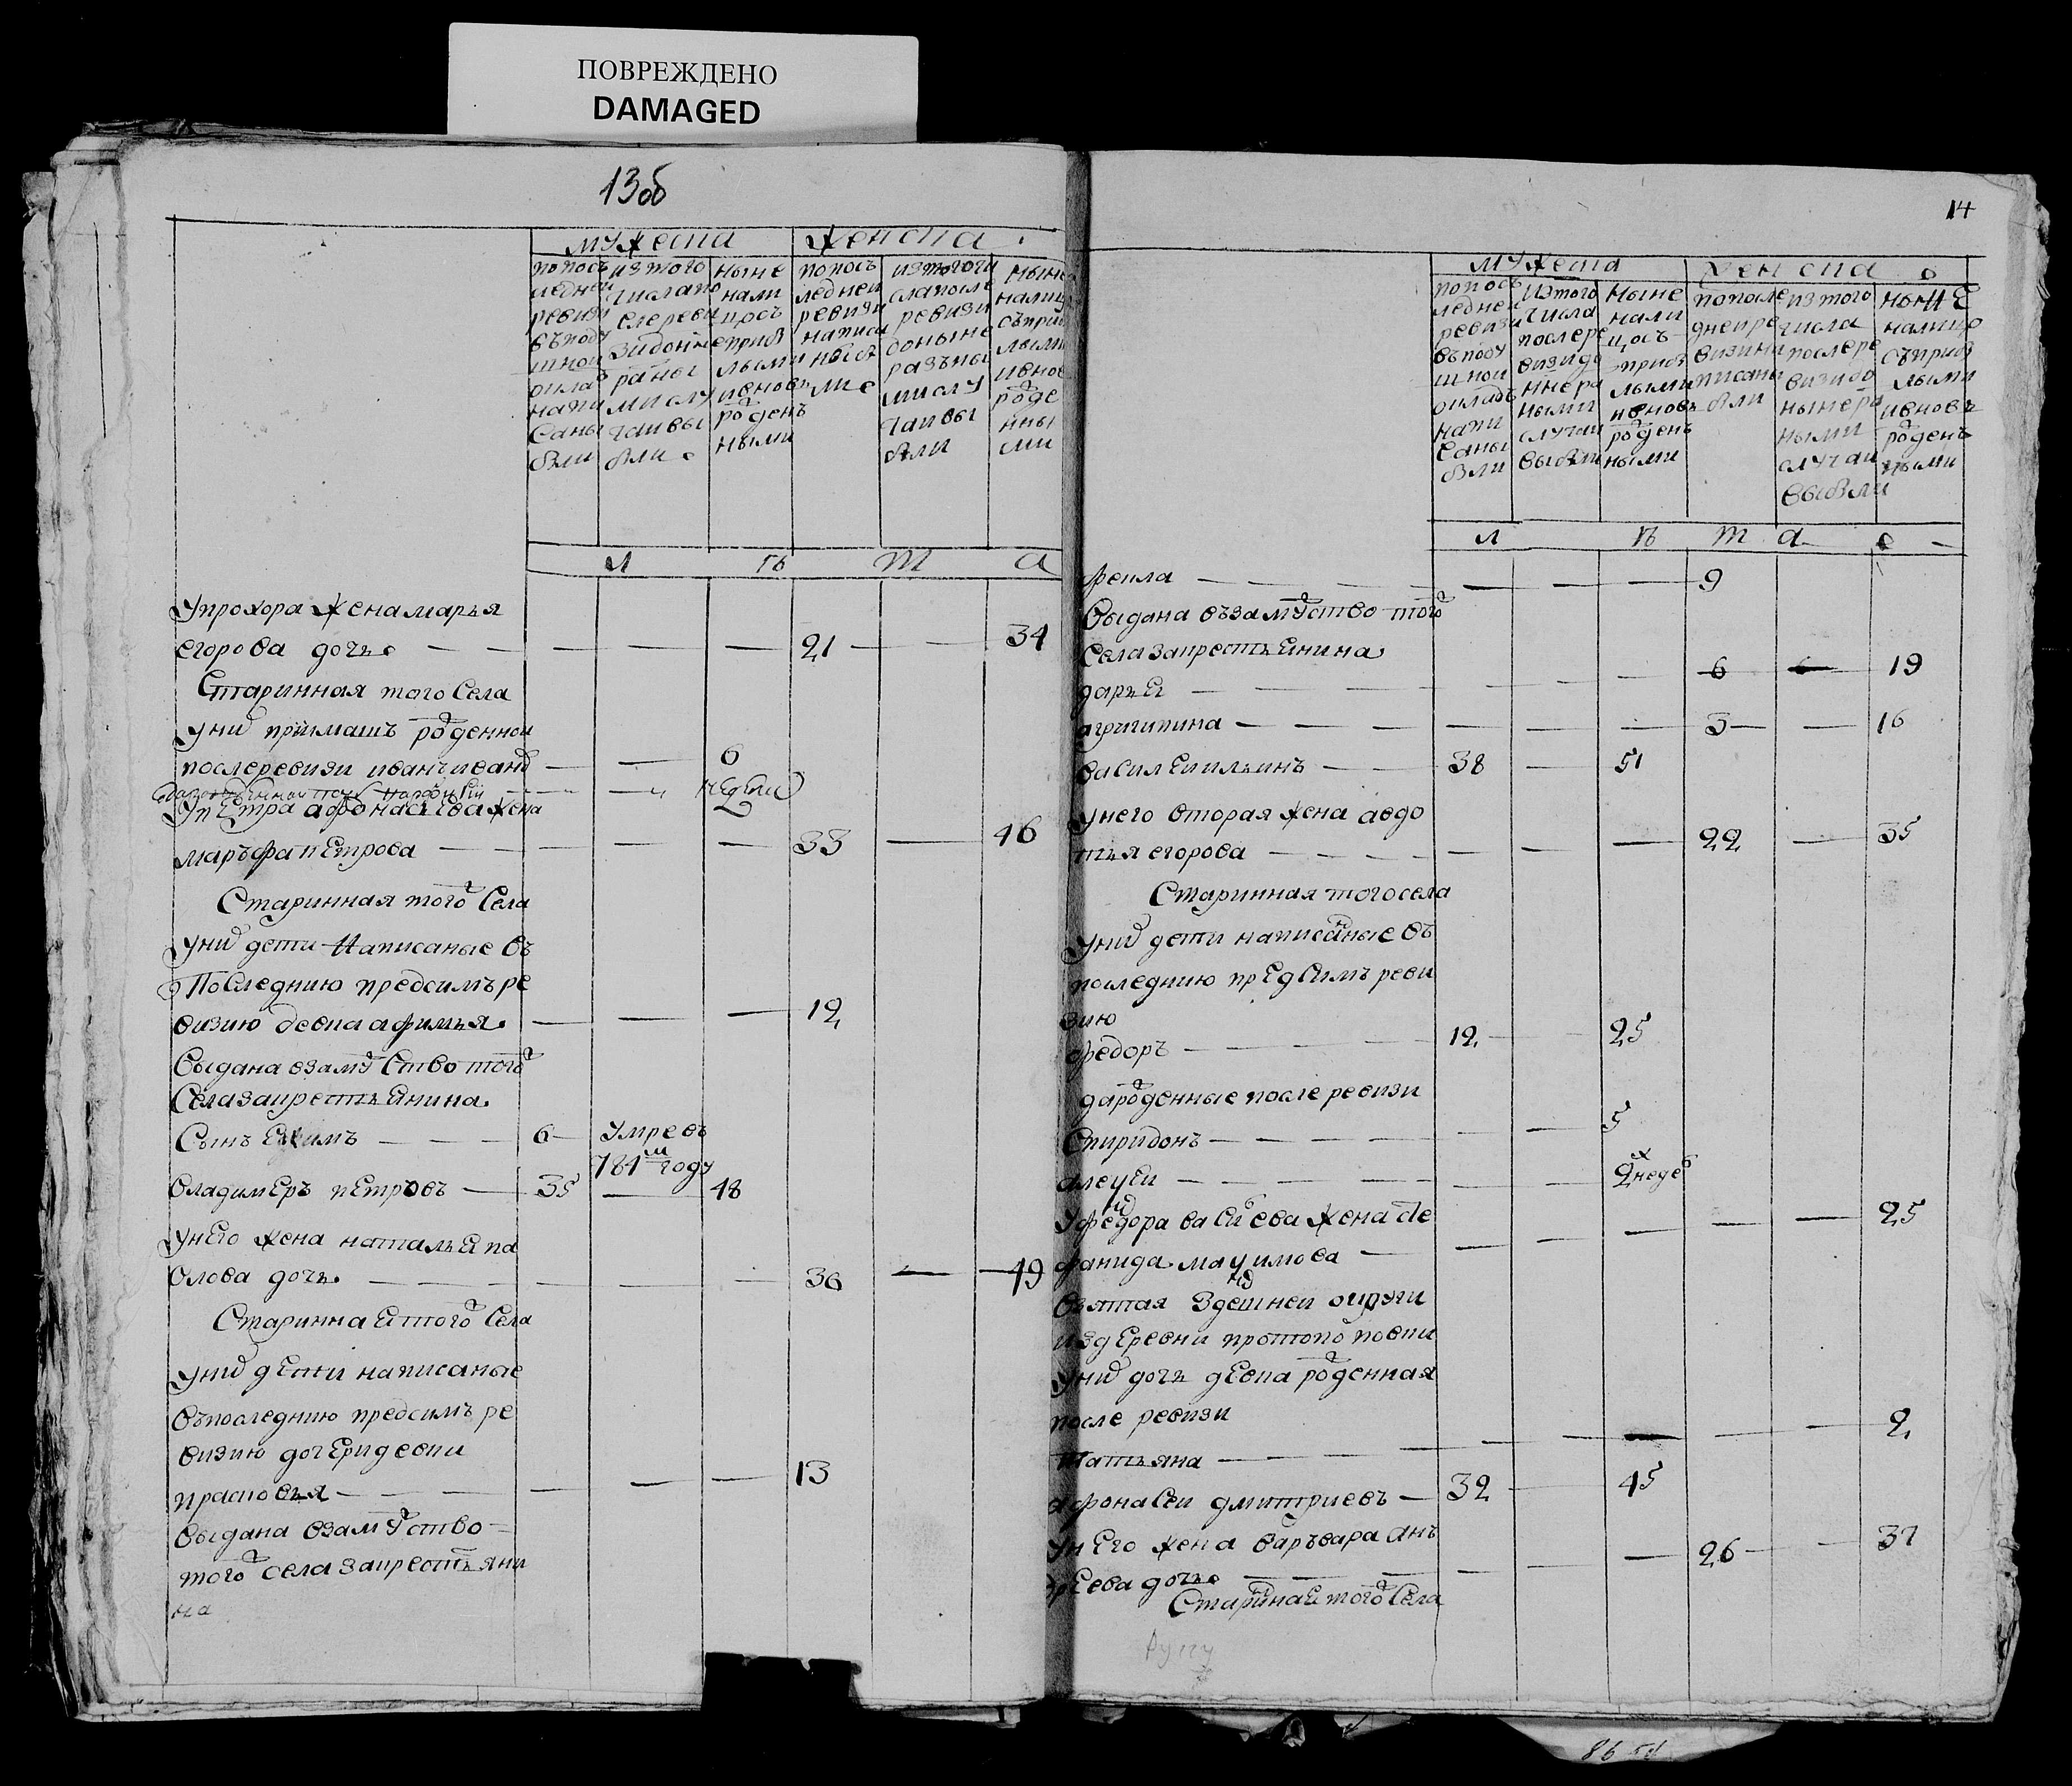 ПОВРЕЖДЕНО
DAMAGED
13об
мужеска женска
попось ледней ревизи въ поду шной оклад напи саны были
изтого числапо слереви зидоные разны ми слу чаи вы были
ныне нали цось прибы лыми ивновь роденъ ными
попось ледней ревизи написа ны бы ли
изтогочи слапосле ревизи доныне разъны ми слу чаи вы были
ныне налицо съприбы лыми ивнов роде нны ми
л ѣ т а
упрохора жена марья
егорова дочь 21 34
Старинная того Села
уних приимашъ роденной
послеревизи иванъ 6 недель
упетра афонасьева жена
маръфа петрова 33 46
Старинная того Села
уних дети написаные въ
последнию предсимъ ре
визию девка афимья 12
выдана взамуство того
Села закрестьянина
Сынъ Екимъ 6 умре въ
781м году
владимеръ петровъ 35 48
унего жена наталья па
влова дочь 36 49
Старинная того Села
уних дети написаные
въпоследнию предсимъ ре
визию дочери девки
прасковья 13
выдана взамуство
того села закрестьяни
на
14
мужеска женска
попось ледней ревизи въ поду шной окладъ напи саны были
изтого числа послере визидо ныера ными случаи выбыли
ныне нали цось прибы лыми ивновь роденъ ными
попосле дней ре визи на писаны были
изтого числа послере визидо ныне ра ными случаи выбыли
ныне налицо съприбы лыми ивновь роденъ ными
л ѣ т а
фекла 9
выдана въ замуство того
Села закрестьянина
дарья 6 19
агрипина 3 16
василей ильинъ 38 51
унего вторая жена авдо
тья егорова 22 35
Старинная того села
уних дети написаные въ
последнию предсимъ реви
зию
федоръ 12 25
дароденные после ревизи
Спиридонъ 5
алексей 2 неде
уфедора васильева жена сте
фанида максимова 25
взятая Здешней округи
издеревни протопоповки
уних дочь девка роденная
после ревизи
татьяна 2
афонасей дмитриевъ 32 45
унего жена варъвара анъ
дреева дочь 26 37
Старинная того Села